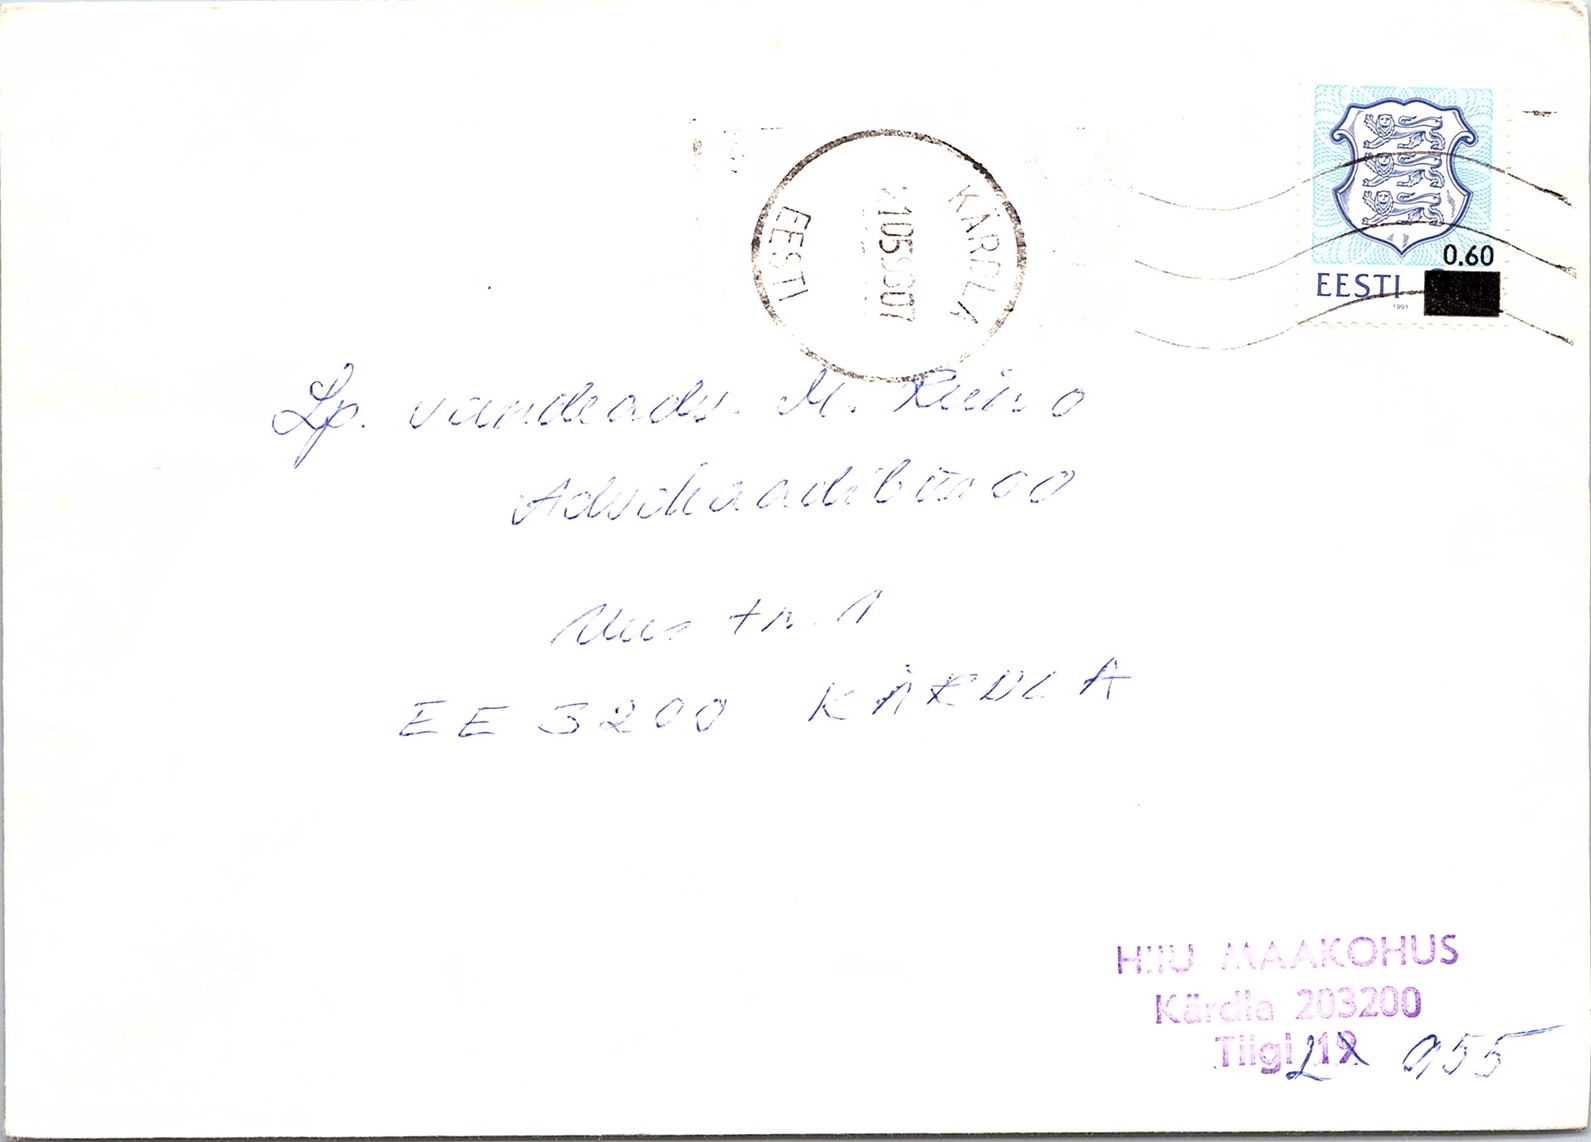 KÄRDLA
EESTI
0.60
EESTI
1991
Lp. vandeadv. M.
Advokaadibüroo
Uus tn. 1
EE 3200 KÄRDLA
HIIU MAAKOHUS
Kärdla 203200
Tiigi
955